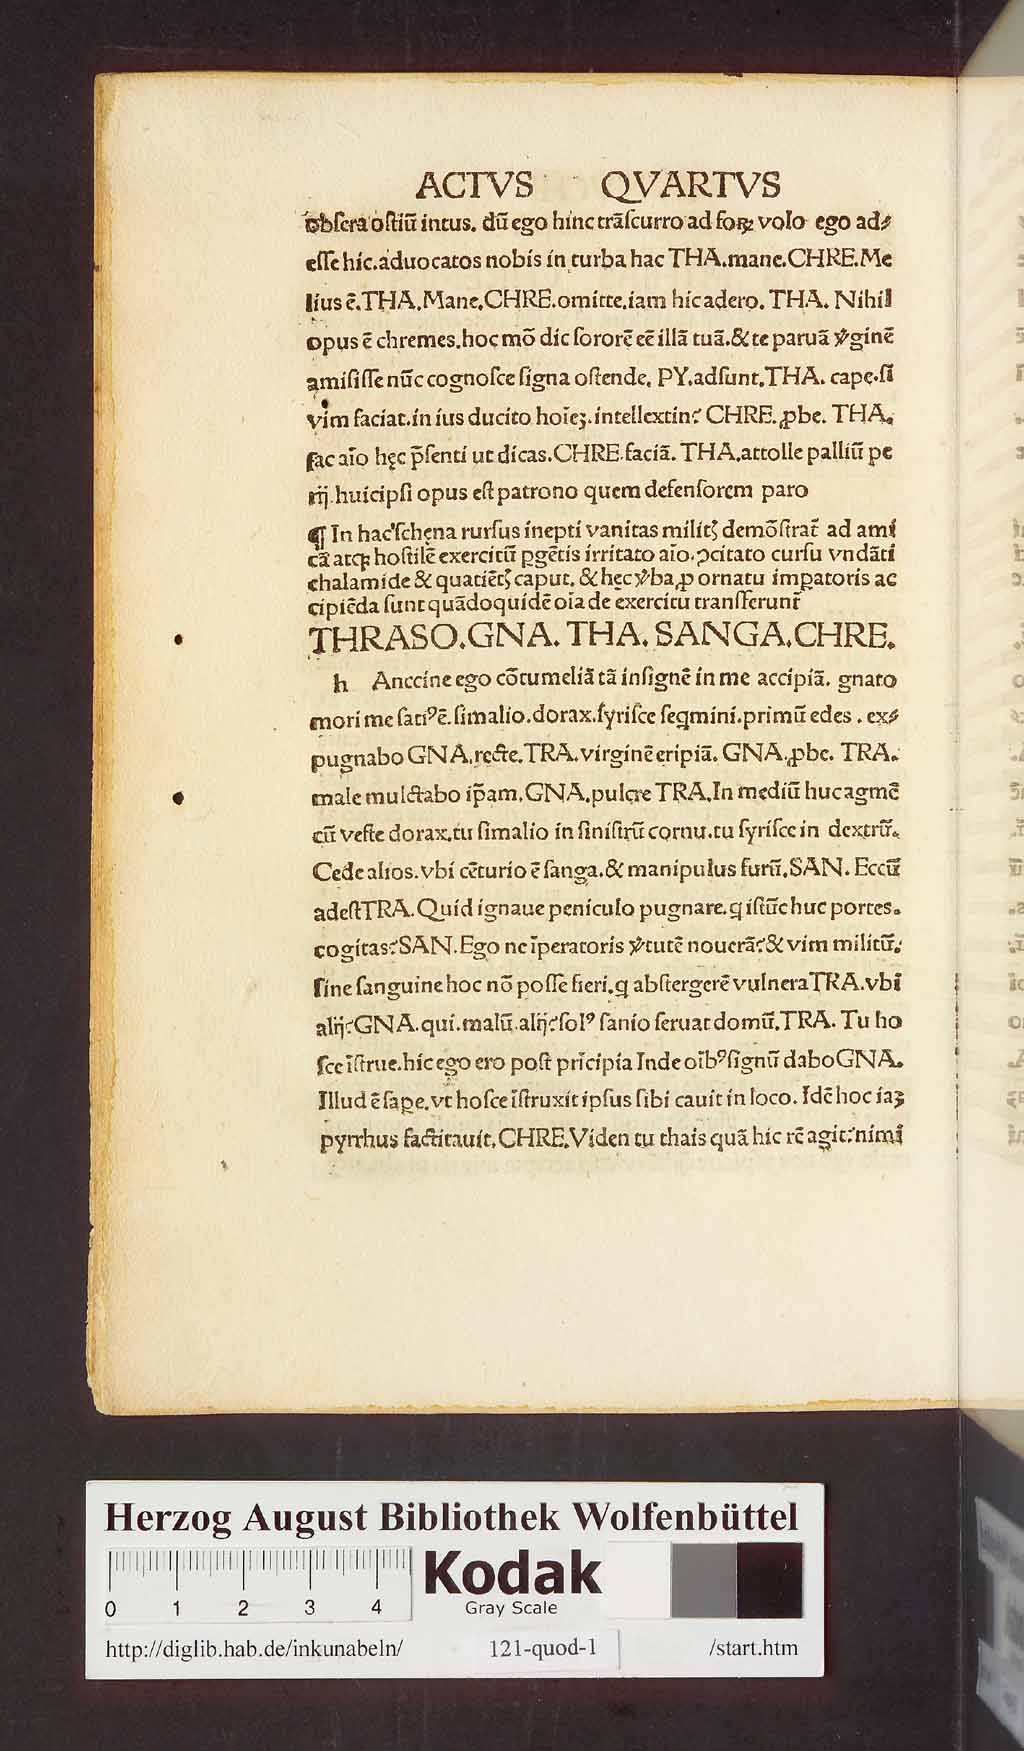 ACTVS QVARTVS
obſcra oſtiū intus. dū ego hinc trāſcurro ad foꝝ volo ego ad⸗
eſſe hic. aduocatos nobis in turba hac THA. mane. CHRE. Me
lius ē. THA. Mane. CHRE. omitte. iam hic adero. THA. Nihil
opus ē chremes. hoc mō dic ſororē eē illā tuā. & te paruā ꝟginē
amiſiſſe nūc cognoſce ſigna oſtende. PY. adſunt. THA. cape. ſi
vim faciat. in ius ducito hoīeꝫ. intellextin? CHRE. ꝓbe. THA.
fac aīo hęc p̄ſenti ut dicas. CHRE. faciā. THA. attolle palliū pe
rij. huicipſi opus eſt patrono quem defenſorem paro
¶ In hac ſchęna rurſus inepti vanitas militꝭ demōſtrat̄ ad ami
cā atqꝫ hoſtilē exercitū ꝑgētis irritato aīo. ꝯcitato curſu vndāti
chalamide & quatiētꝭ caput. & hęc ꝟba ꝓ ornatu imꝑatoris ac
cipiēda ſunt quādoquidē oīa de exercitu tranſſerunt̄
THRASO. GNA. THA. SANGA. CHRE.
h Anccine ego cōtumeliā tā inſignē in me accipiā. gnato
mori me ſatiꝰ ē. ſimalio. dorax. ſyriſce ſeqmini. primū edes. ex⸗
pugnabo GNA. recte. TRA. virginē eripiā. GNA. ꝓbe. TRA.
male mulctabo ip̄am. GNA. pulcre TRA. In mediū huc agmē
cū vefte dorax. tu ſimalio in ſiniſtrū cornu. tu ſyriſce in dextrū.
Cede alios. vbi cēturio ē ſanga. & manipulus furū. SAN. Eccū
adeſt TRA. Quid ignaue peniculo pugnare. q iſtūc huc portes.
cogitas? SAN. Ego ne īperatoris ꝟtutē nouerā? & vim militū.
ſine ſanguine hoc nō poſſe fieri. q abſtergerē vulnera TRA. vbi
alij? GNA. qui. malū. alij? ſolꝰ ſanio ſeruat domū. TRA. Tu ho
ſce īſtrue. hic ego ero poſt prīcipia Inde oībꝰ ſignū dabo GNA.
Illud ē ſape. vt hoſce īſtruxit ipſus ſibi cauit in loco. Idē hoc iaꝫ
pyrrhus factitauit. CHRE. Viden tu thais quā hic rē agit? nimi
Herzog August Bibliothek Wolfenbüttel
0 1 2 3 4
Kodak
Gray Scale
http://diglib.hab.de/inkunabeln/ 121-quod-1 /start.htm